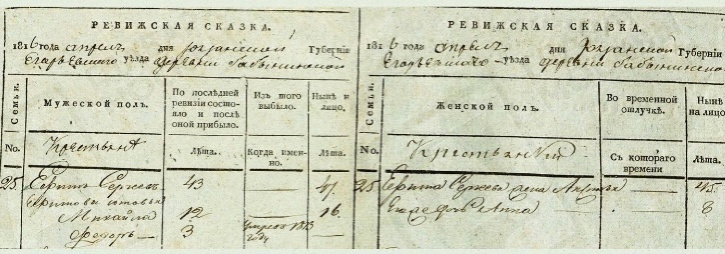 РЕВИЖСКАЯ СКАЗКА.
1816 года апреля дня рязанской Губерніи
Егорьевского уѣзда деревни Бабынинской
Семьи.
Мужеской полъ.
По послѣдней ревизіи состояло и послѣ оной прибыло.
Изъ того выбыло.
Нынѣ на лицо.
No.
Лѣта.
Когда именно.
Лѣта.
25 Сергеев 43 — 47.
Михайла 12 — 16.
Федоръ — 3 1813 году —
РЕВИЖСКАЯ СКАЗКА.
1816 года апреля дня рязанской Губерніи
Егорьевского уѣзда деревни Бабынинской
Семьи.
Женской полъ.
Во временной отлучкѣ.
Нынѣ на лицо.
No.
Съ котораго времени
Лѣта.
25 Сергеева жена — 45.
Анна — 8